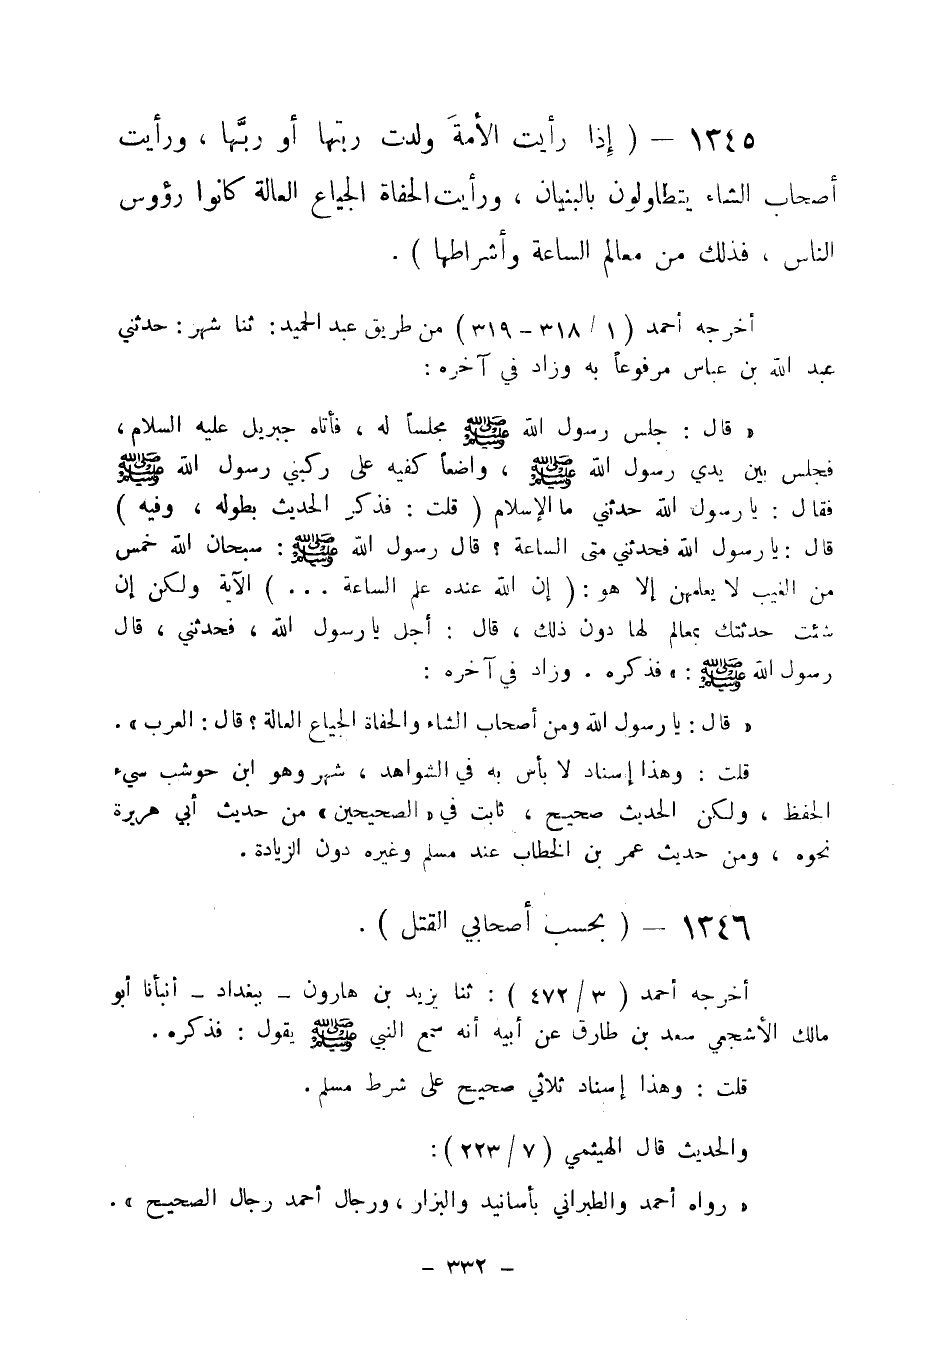 ١٣٤٥ – ( إذا رأيت الأمةَ ولدت ربتها أو ربَّها ، ورأيت
أصحاب الشاء يتطاولون بالبنيان ، ورأيت الحفاة الجياع العالة كانوا رؤوس
الناس ، فذلك من معالم الساعة وأشراطها ) .
أخرجه أحمد ( ١ / ٣١٨ – ٣١٩ ) من طريق عبد الحميد : ثنا شهر : حدثني
عبد الله بن عباس مرفوعاً به وزاد في آخره :
« قال : جلس رسول الله ﷺ مجلساً له ، فأتاه جبريل عليه السلام ،
فجلس بين يدي رسول الله ﷺ ، واضعاً كفيه على ركبتي رسول الله ﷺ
فقال : يا رسول الله حدثني ما الإسلام ( قلت : فذكر الحديث بطوله ، وفيه )
قال : يا رسول الله فحدثني متى الساعة ؟ قال رسول الله ﷺ : سبحان الله خمس
من الغيب لا يعلمهن إلا هو : ( إن الله عنده علم الساعة ... ) الآية ولكن إن
شئت حدثتك بمعالم لها دون ذلك ، قال : أجل يا رسول الله ، فحدثني ، قال
رسول الله ﷺ : » فذكره . وزاد في آخره :
« قال : يا رسول الله ومن أصحاب الشاء والحفاة الجياع العالة ؟ قال : العرب » .
قلت : وهذا إسناد لا بأس به في الشواهد ، شهر وهو ابن حوشب سيء
الحفظ ، ولكن الحديث صحيح ، ثابت في « الصحيحين » من حديث أبي هريرة
نحوه ، ومن حديث عمر بن الخطاب عند مسلم وغيره دون الزيادة .
١٣٤٦ – ( بحسب أصحابي القتل ) .
أخرجه أحمد ( ٣ / ٤٧٢ ) : ثنا يزيد بن هارون – ببغداد – أنبأنا أبو
مالك الأشجعي سعد بن طارق عن أبيه أنه سمع النبي ﷺ يقول : فذكره .
قلت : وهذا إسناد ثلاثي صحيح على شرط مسلم .
والحديث قال الهيثمي ( ٧ / ٢٢٣ ) :
« رواه أحمد والطبراني بأسانيد والبزار ، ورجال أحمد رجال الصحيح » .
– ٣٣٢ –